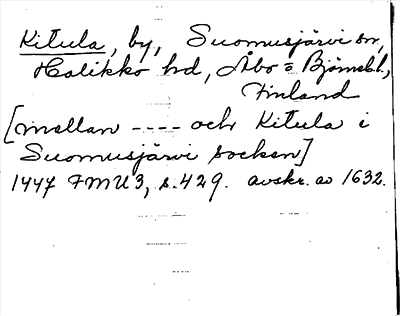 Kitula, by, Suomusjärvi sn,
Halikko hd, Åbo = Björneb.l.,
Finland
[mellan ---- och Kitula i
Suomusjärvi socken]
1447 FMU 3, s. 429. avskr. av 1632.